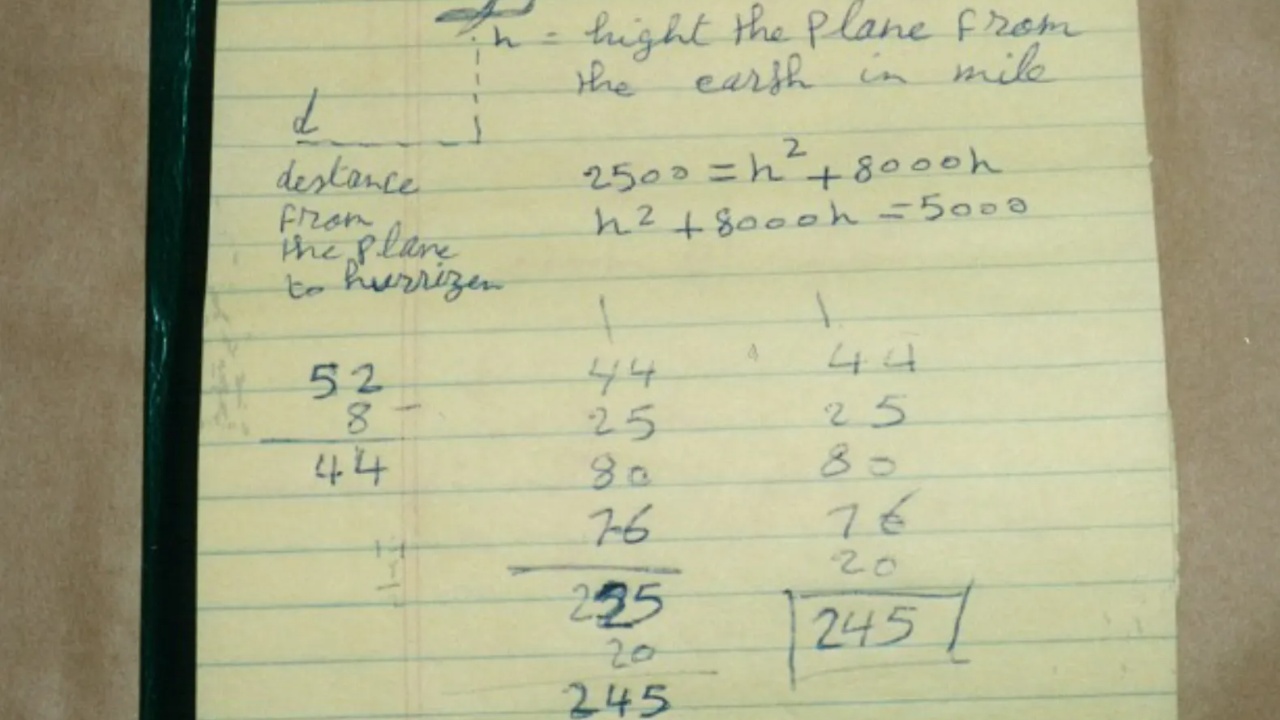 h = hight the Plane From
the earth in mile
d
destance
From
the plane
to hurrizen
2500 = h² + 8000h
h² + 8000h = 5000
52
8 -
44
1
44
25
80
76
225
20
245
1
44
25
80
76
20
245